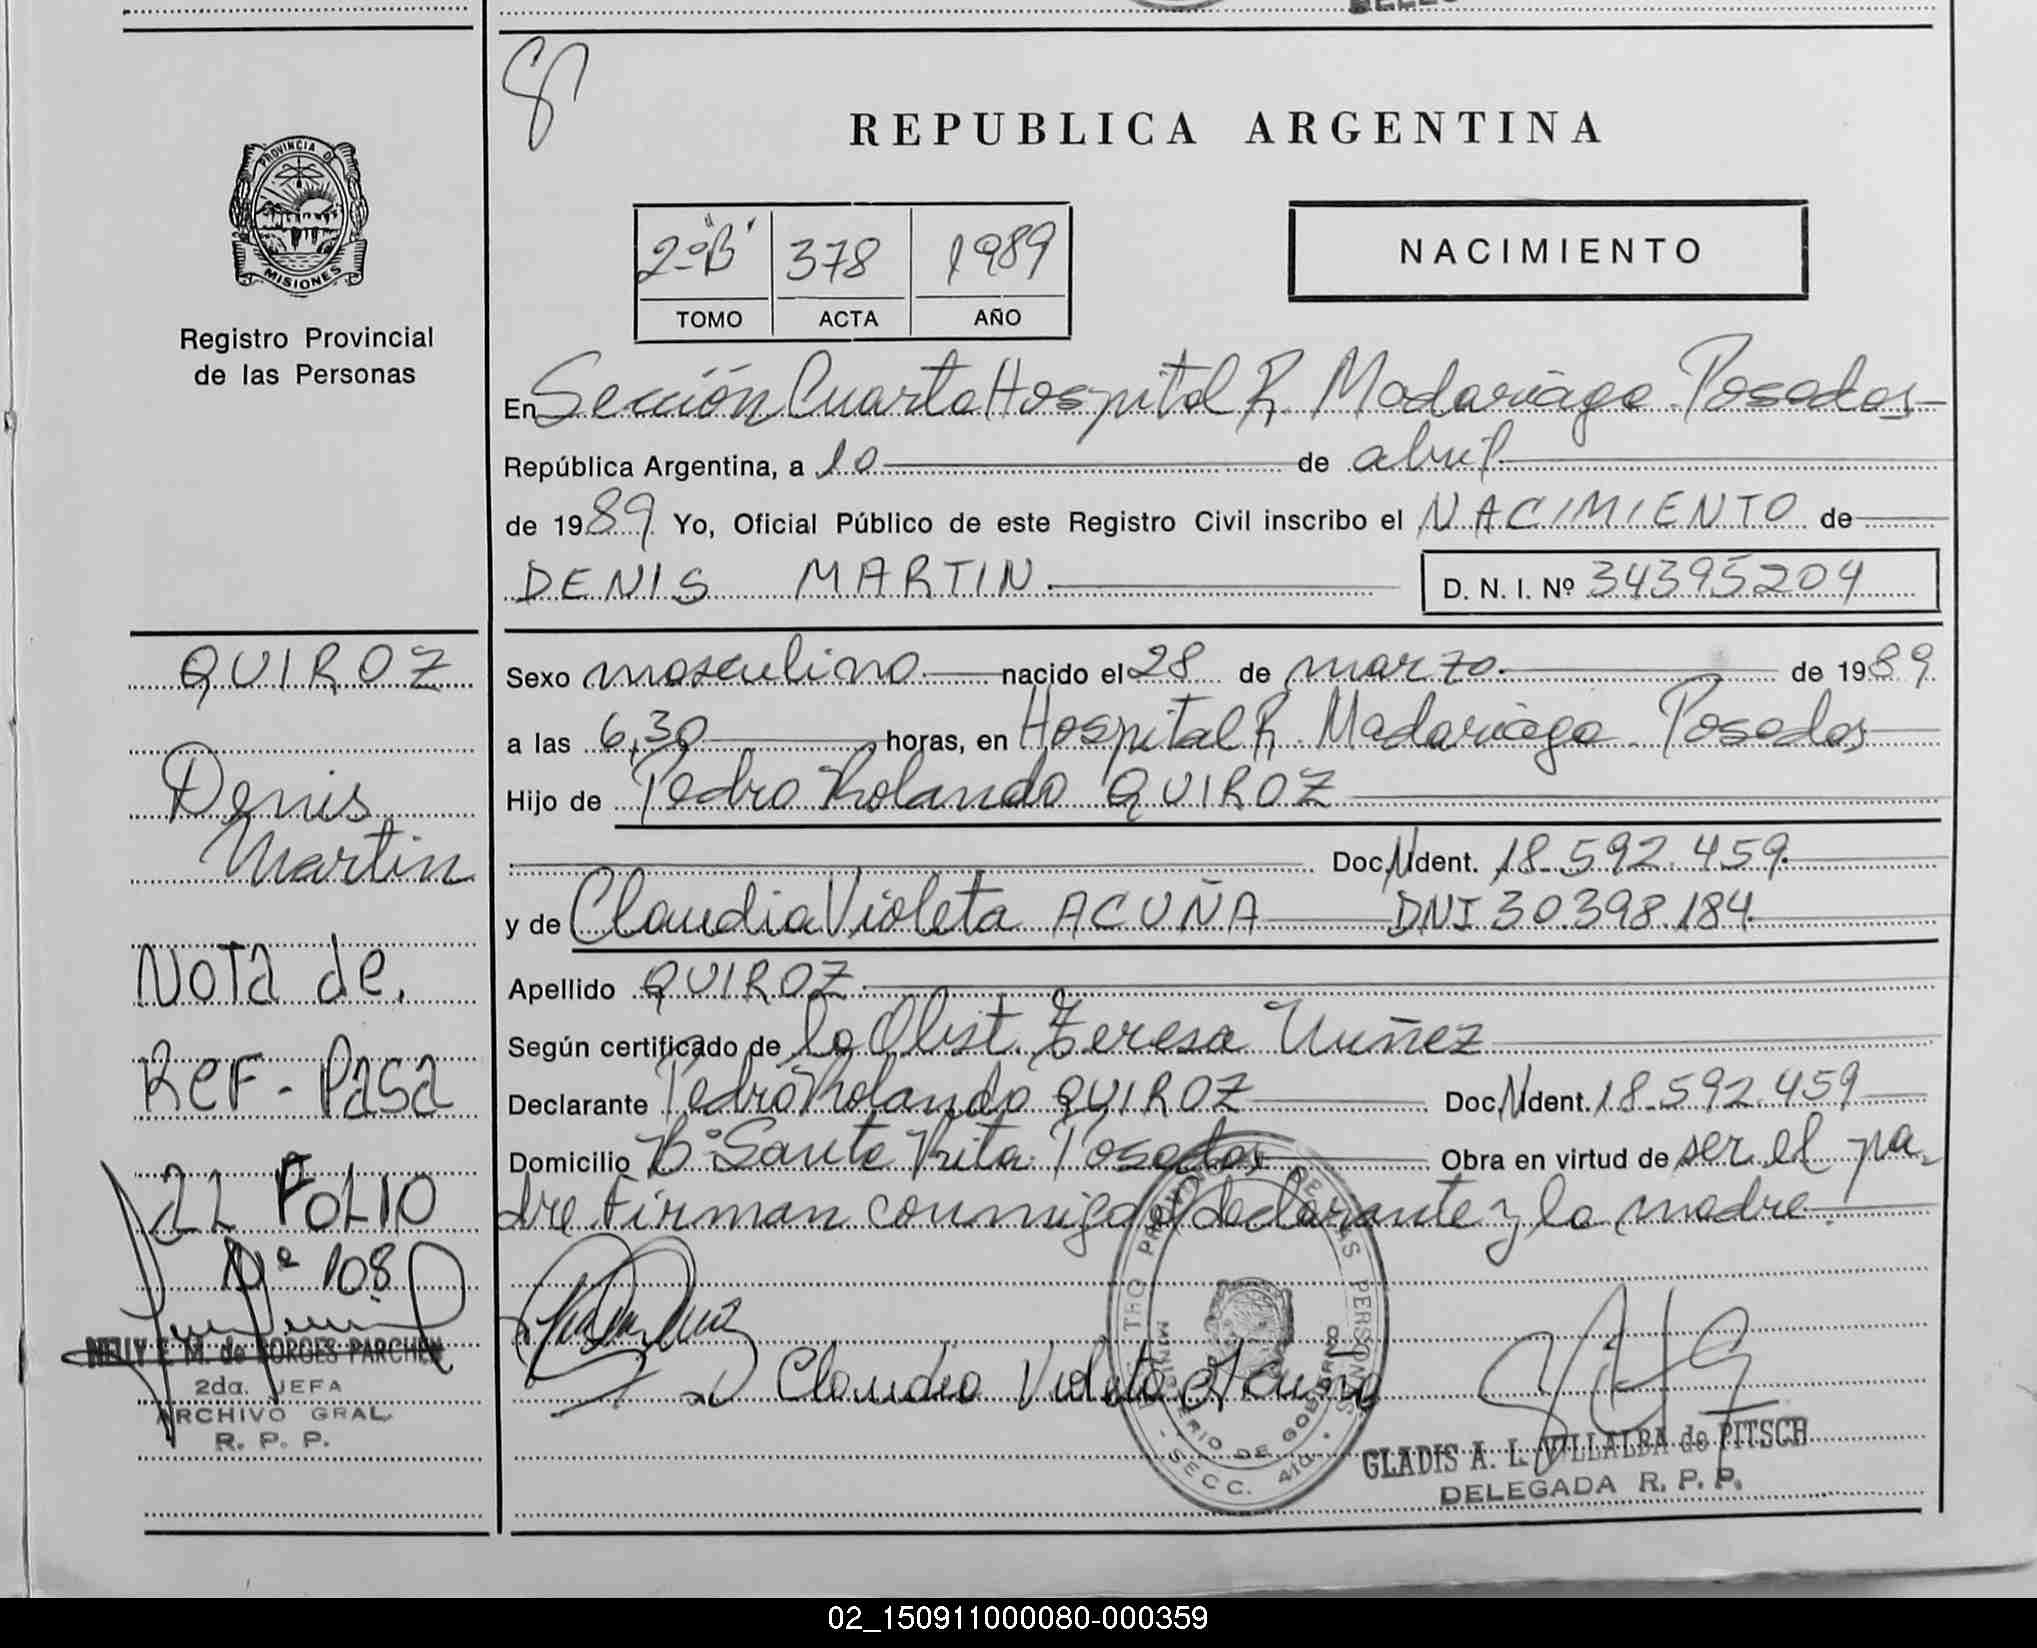 REPUBLICA ARGENTINA
PROVINCIA DE
MISIONES
Registro Provincial
de las Personas
2º "B" 378 1989
TOMO ACTA AÑO
NACIMIENTO
En Sección Cuarta Hospital R. Madariaga. Posadas
República Argentina, a 10 de abril
de 1989 Yo, Oficial Público de este Registro Civil inscribo el NACIMIENTO de
DENIS MARTIN. D. N. I. Nº 34395204
Sexo masculino nacido el 28 de marzo. de 1989
a las 6,30 horas, en Hospital R. Madariaga. Posadas
Hijo de Pedro Rolando QUIROZ
Doc. N Ident. 18.592.459
y de Claudia Violeta ACUÑA DNI 30.398.184
Apellido QUIROZ
Según certificado de la Obst. Teresa Nuñez
Declarante Pedro Rolando QUIROZ Doc. N Ident. 18.592.459
Domicilio Bº Santa Rita. Posadas Obra en virtud de ser el pa-
dre. Firman conmigo el declarante y la madre.
QUIROZ
Denis
Martin
Nota de.
Ref - Pasa
Folio
Nº 108
NELLY E. M. de BORGES PARCHEN
2da. JEFA
ARCHIVO GRAL.
R. P. P.
Claudia Violeta Acuña
PROVINCIAL DE LAS PERSONAS
MINISTERIO DE GOBIERNO
- SECC. 4ta. -
GLADIS A. L. VILLALBA de PITSCH
DELEGADA R. P. P.
02_150911000080-000359